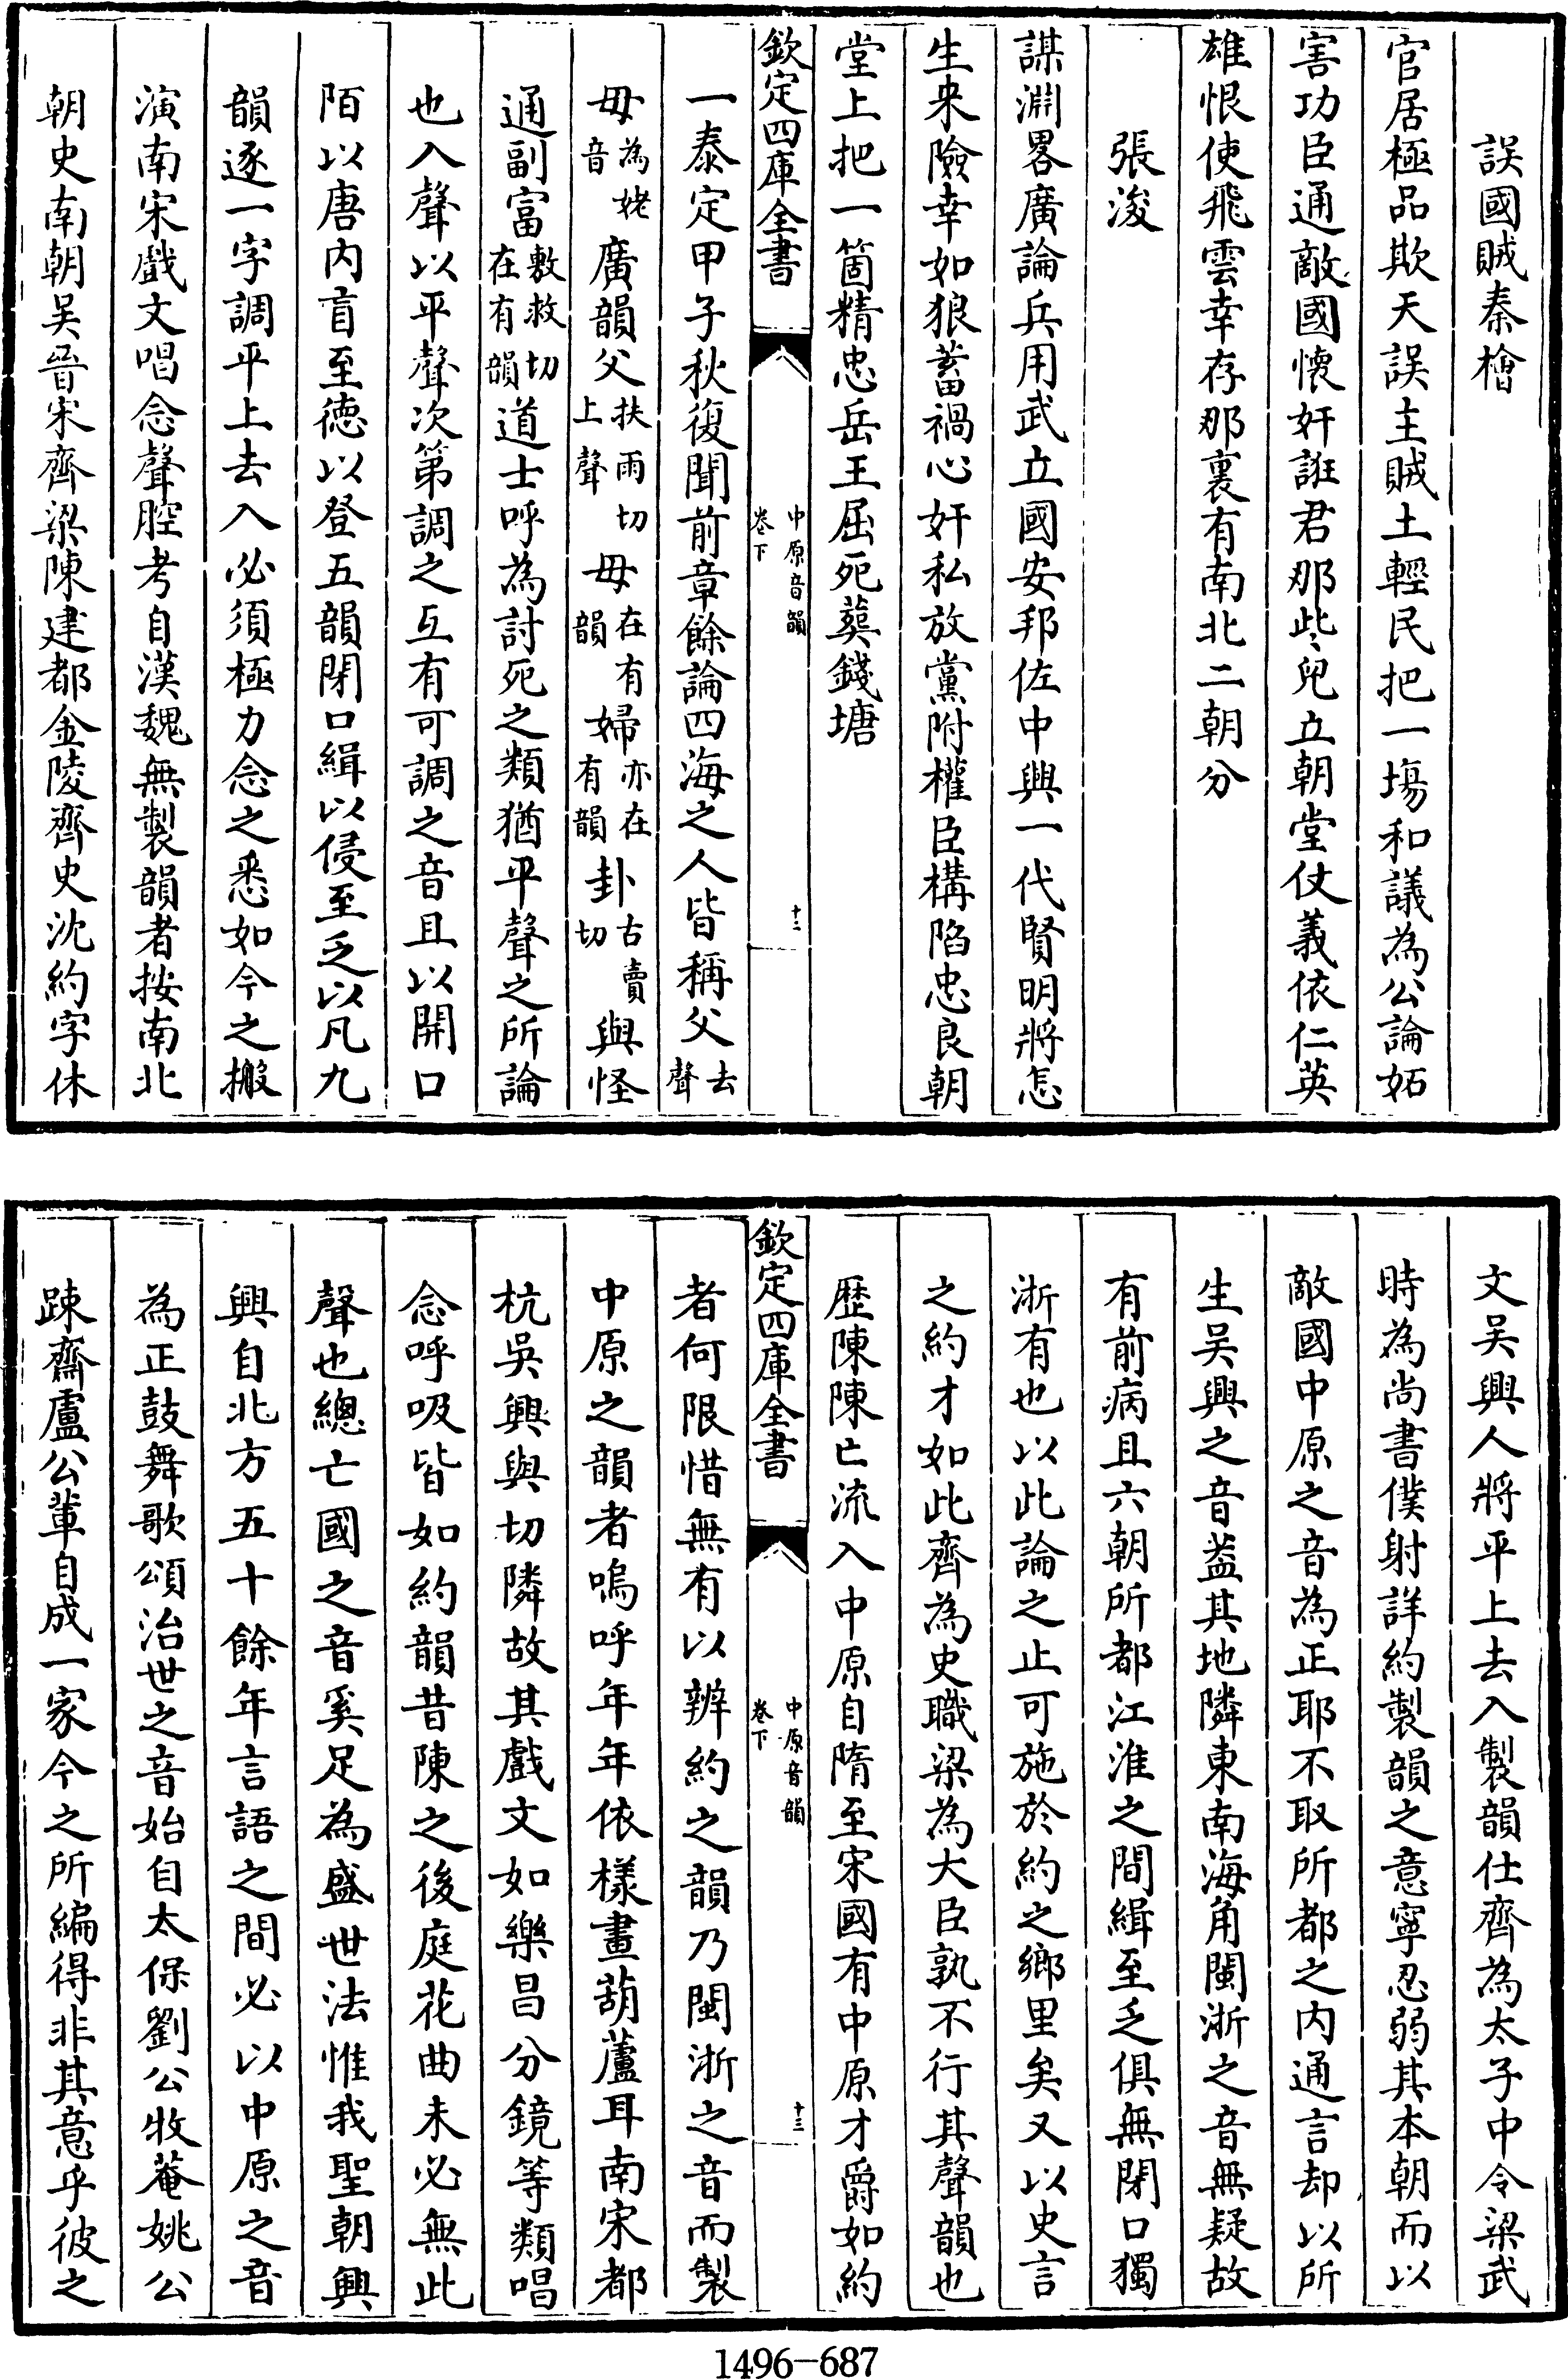 誤國賊秦檜
官居極品欺天誤主賊土輕民把一場和議為公論妬
害功臣通敵國懐奸誑君那些兒立朝堂仗義依仁英
雄恨使飛雲幸存那裏有南北二朝分
張浚
謀淵畧廣論兵用武立國安邦佐中興一代賢明將怎
生来險幸如狼蓄禍心奸私放黨附權臣構陷忠良朝
堂上把一箇精忠岳王屈死葬錢塘
欽定四庫全書
中原音韻
卷下
十二
一泰定甲子秋復聞前章餘論四海之人皆稱父去聲
母為姥音廣韻父扶雨切上聲母在有韻婦亦在有韻卦古賣切與怪
通副富敷救切在有韻道士呼為討死之類猶平聲之所論
也入聲以平聲次第調之互有可調之音且以開口
陌以唐内盲至徳以登五韻閉口緝以侵至乏以凡九
韻逐一字調平上去入必須極力念之悉如今之搬
演南宋戲文唱念聲腔考自漢魏無製韻者按南北
朝史南朝吴晉宋齊梁陳建都金陵齊史沈約字休
文吴興人將平上去入製韻仕齊為太子中令梁武
時為尚書僕射詳約製韻之意寧忍弱其本朝而以
敵國中原之音為正耶不取所都之内通言却以所
生吴興之音葢其地隣東南海角閩浙之音無疑故
有前病且六朝所都江淮之間緝至乏俱無閉口獨
浙有也以此論之止可施於約之鄉里矣又以史言
之約才如此齊為史職梁為大臣孰不行其聲韻也
歴陳陳亡流入中原自隋至宋國有中原才爵如約
欽定四庫全書
中原音韻
卷下
十三
者何限惜無有以辨約之韻乃閩浙之音而製
中原之韻者嗚呼年年依樣畫葫蘆耳南宋都
杭吳興與切隣故其戲文如樂昌分鏡等類唱
念呼吸皆如約韻昔陳之後庭花曲未必無此
聲也總亡國之音奚足為盛世法惟我聖朝興
興自北方五十餘年言語之間必以中原之音
為正鼓舞歌頌治世之音始自太保劉公牧菴姚公
踈齋盧公輩自成一家今之所編得非其意乎彼之
1496-687